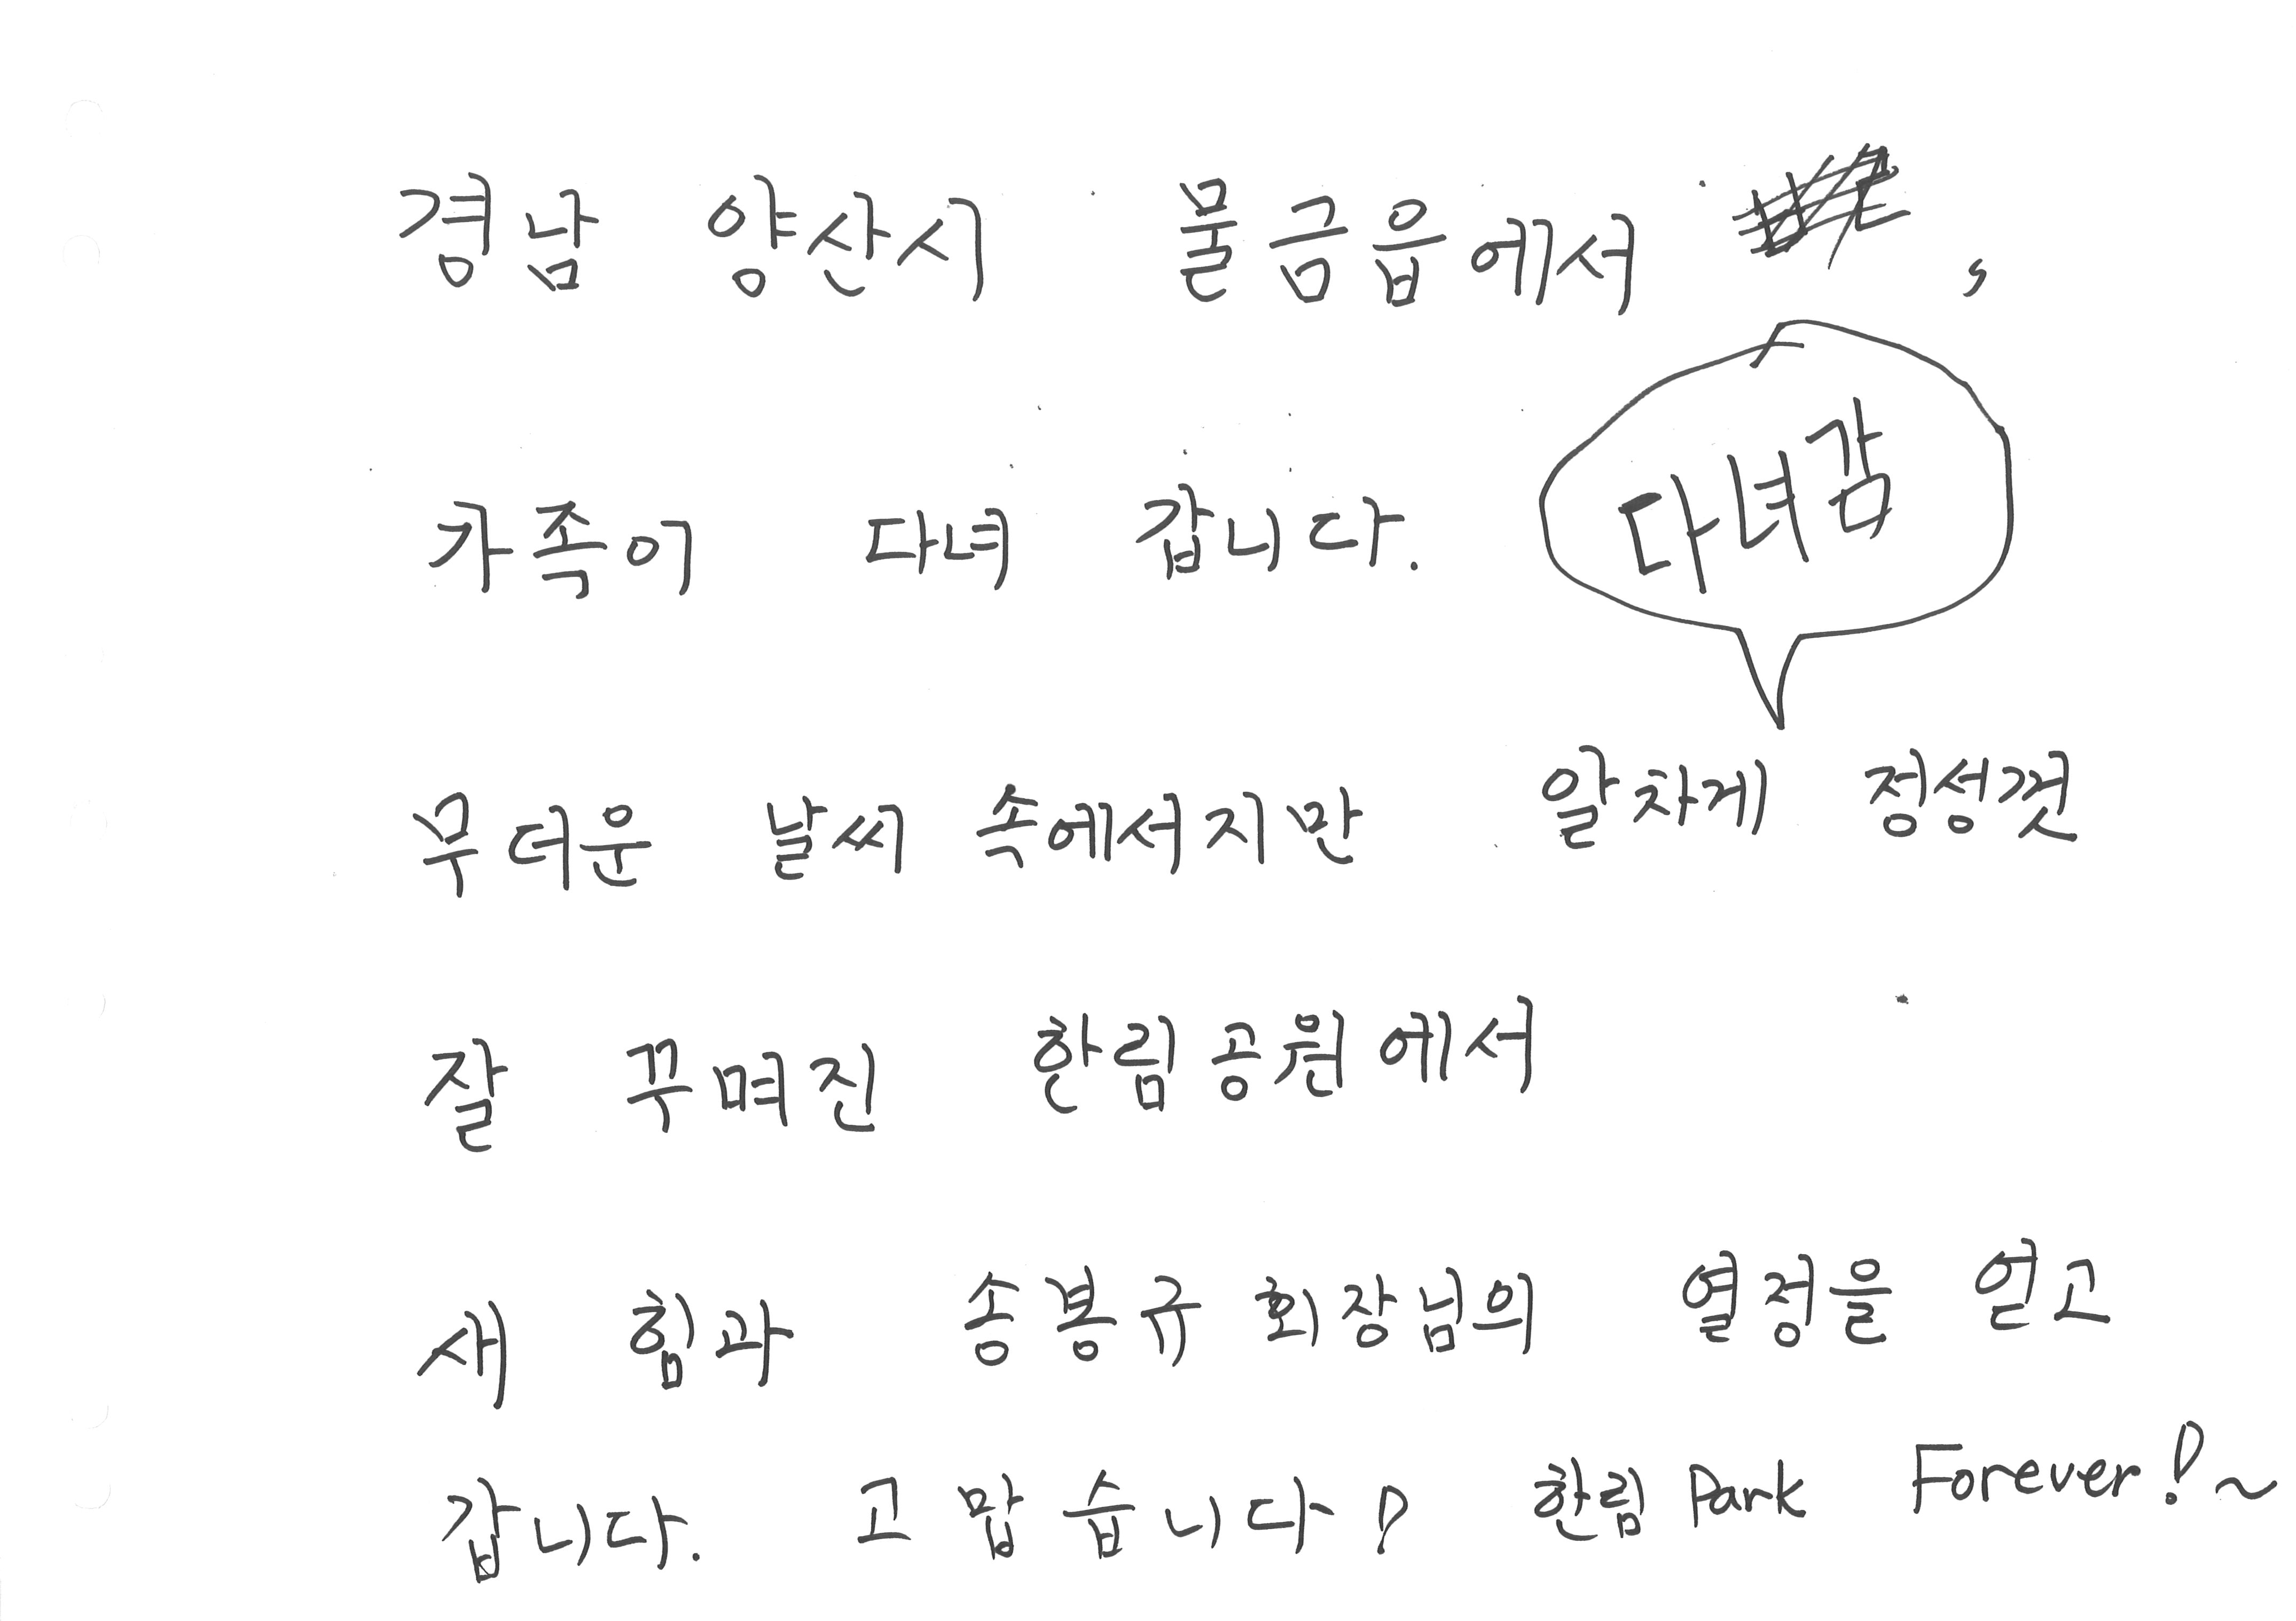 경남 양산시 물금읍에서 ,
가족이 다녀 갑니다.
다녀감
무더운 날씨 속에서지만 알차게 정성껏
잘 꾸며진 한림공원에서
새 힘과 송봉규 회장님의 열정을 얻고
갑니다. 고맙습니다! 한림 Park Forever!~